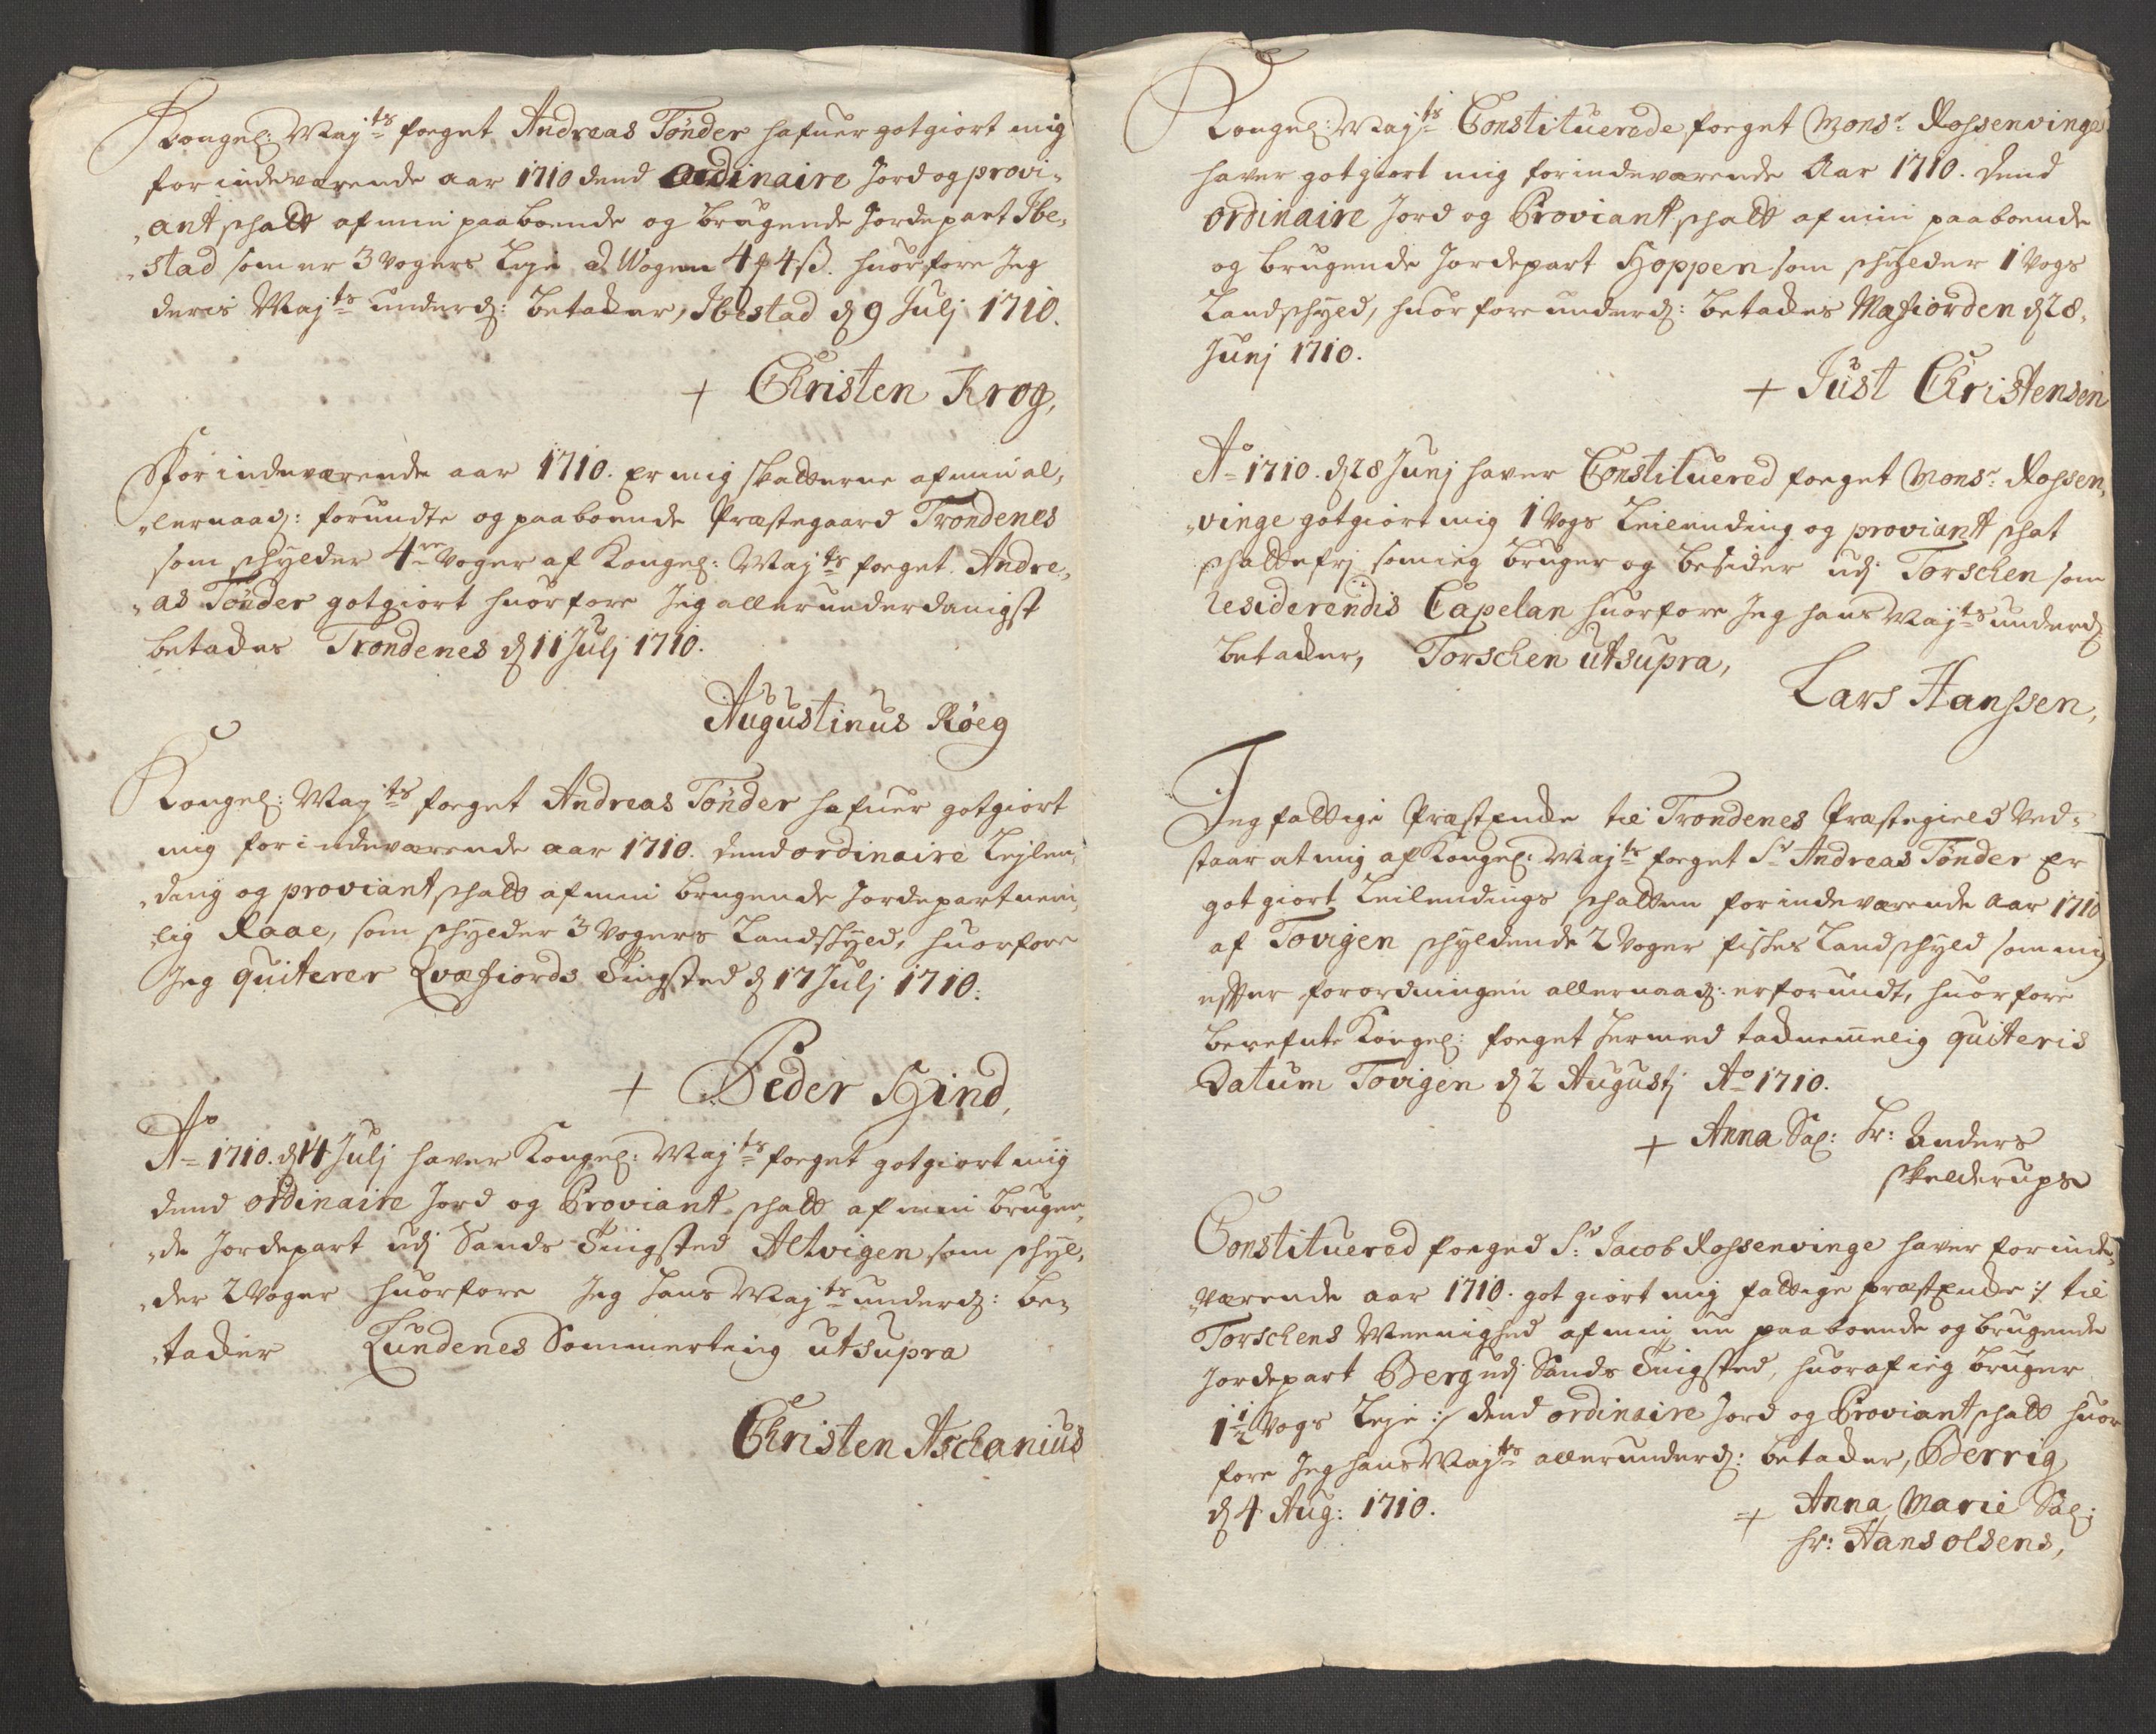 Kongel: Majts foeget Andreas Tønder hafuer gotgiort mig
for indeværende aar 1710 dend ordinaire Jord og provi-
ant schatt af min paaboende og brugende Jordepart Ibe-
stad som er 3 Vogers Leje a Wogen 4 4 ß. huorfore Jeg
deris Majts underd: betacker, Ibestad d 9 Julj 1710.
+ Christen Krog,
For indeværende aar 1710. er mig skatterne af min al-
lernaad: forundte og paaboende Præstegaard Trondenes
som schylder 4re Voger af Kongel: Majts foeget Andre-
as Tønder gotgiort huorfore Jeg allerunderdanigst
betacker Trondenes d 11 Julj 1710.
Augustinus Røeg
Kongel: Majts foeget Andreas Tønder hafuer gotgiort
mig for indeværende aar 1710. dend ordinaire Lejlen-
ding og proviant schatt af min brugende Jordepart nem-
lig Raae, som schylder 3 Vogers Landschyld, huorfore
Jeg quiterer Qvæfiords Tingsted d 17 Julj 1710.
+ Peder Hind,
Ao 1710. d 14 Julj haver Kongel: Majts foeget gotgiort mig
dend ordinaire Jord og Proviant schatt af min brugen-
de Jordepart udj Sands Tingsted Altvigen som schyl-
der 2 Voger huorfore Jeg hans Majts underd: be-
tacker Lundenes Sommerting utsupra
Christen Aschanius
Kongel: Majts Constituerede foeget Monsr: Rossenvinge
haver gotgiort mig for indeværende Aar 1710. dend
ordinaire Jord og Proviant schatt af min paaboende
og brugende Jordepart Hoppen som schylder 1 Vogs
Landschyld, huorfore underd: betackes Mafiorden d 28.
Junj 1710.
+ Just Christensen
Ao 1710. d 28 Junj haver Constituered foeget Monsr: Rossen-
vinge gotgiort mig 1 Vogs Leilending og proviant schat
schattefrj som ieg bruger og besider udj Torschen som
residerendis Capelan huorfore Jeg hans Majts underd:
betacker, Torschen utsupra,
Lars Hanssen,
Jeg fattige Præstencke til Trondenes Præstegield Ved-
staar at mig af Kongel: Majts foeget Sr Andreas Tønder er
got giort Leilendings schatten for indeværende Aar 1710
af Tovigen schyldende 2 Voger fisches Landschyld som mig
effter forordningen allernaad: er forundt, huorfore
berefnte Kongel: foeget hermed tacknemelig quiteris
Datum Tovigen d 2 Augustj Ao 1710.
+ Anna Sal: Hr: Anders
Skelderups
Constituered foeged Sr: Jacob Rossenvinge haver for inde-
værende aar 1710. got giort mig fattige præstencke :/ til
Torschens Meenighed af min nu paaboende og brugende
Jordepart Berg udj Sands Tingsted, huoraf ieg bruger
1 1/2 Vogs Leje :/ dend ordinaire Jord og Proviant schatt huor
fore Jeg hans Majts allerunderd: betacker, Berrig
d 4 Aug: 1710.
+ Anna Marie Sal:
hr: Hans olsens,